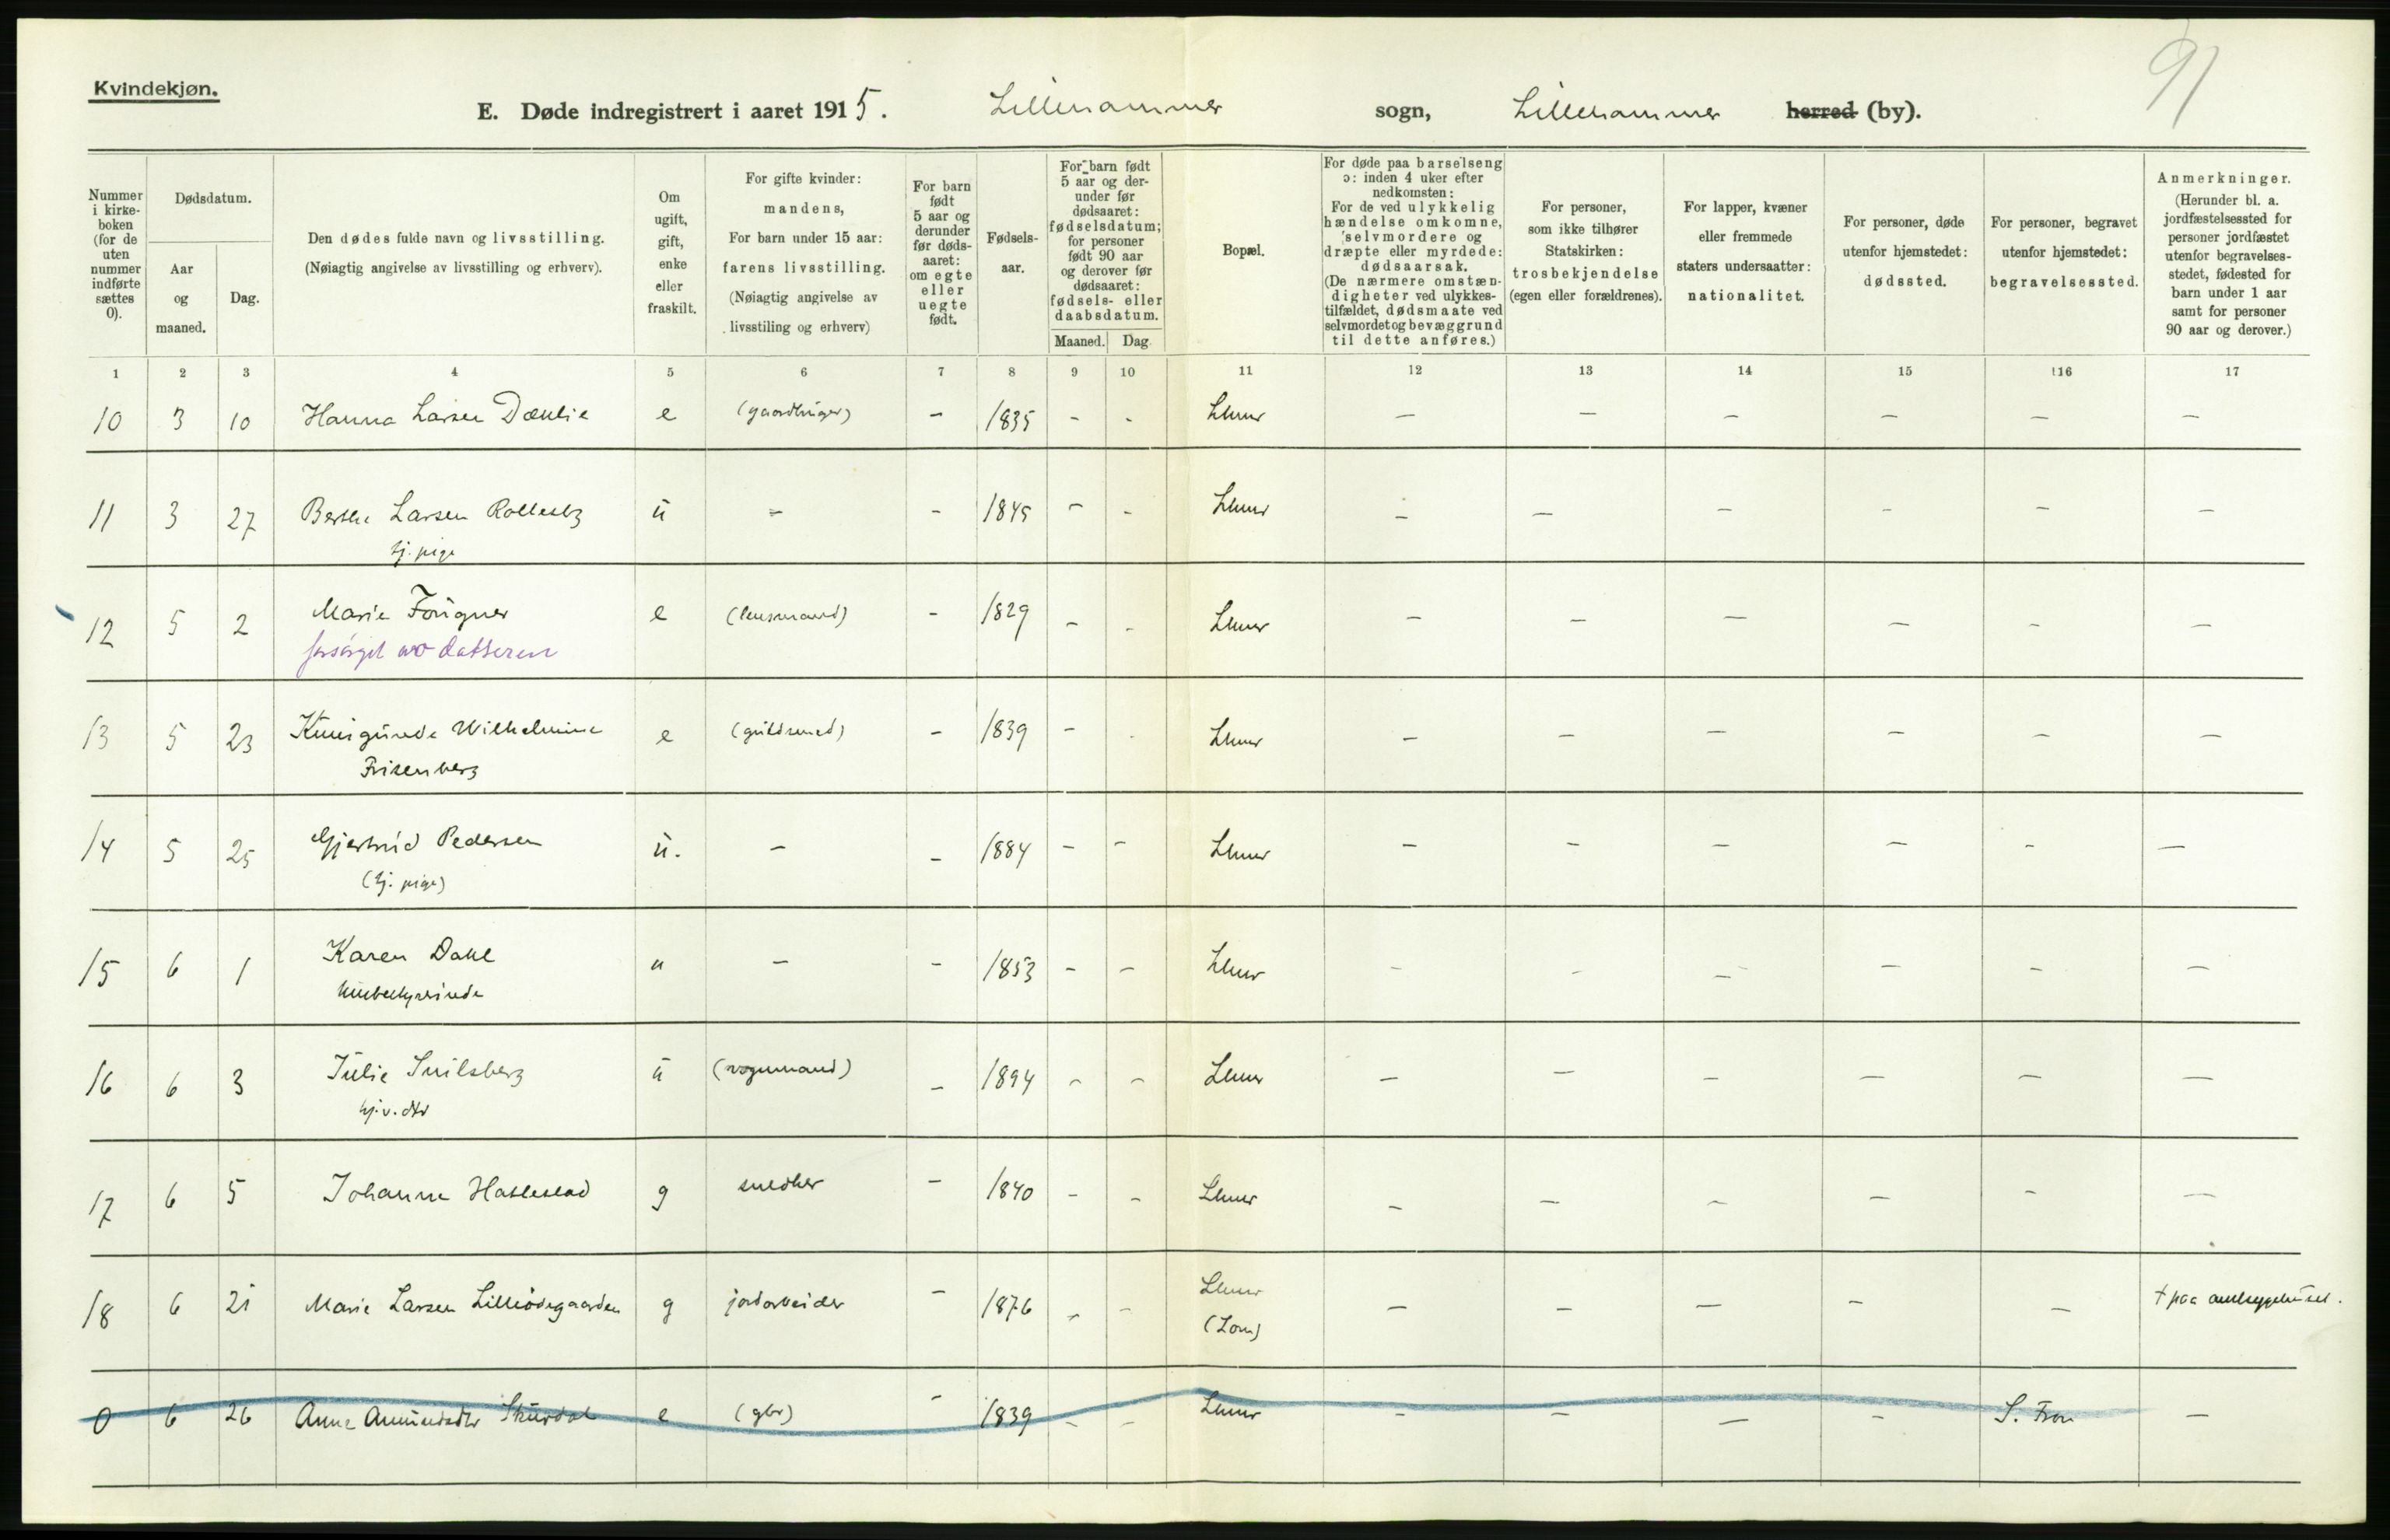 91
Kvindekjøn.
E. Døde indregistrert i aaret 1915. Lillehammer sogn, Lillehammer herred (by).
Nummer i kirke-
boken
(for de
uten
nummer
indførte
sættes
0).
Dødsdatum.
Aar
og
maaned.
Dag.
Den dødes fulde navn og livsstilling.
(Nøiagtig angivelse av livsstilling og erhverv).
Om
ugift,
gift,
enke
eller
fraskilt.
For gifte kvinder:
mandens,
For barn under 15 aar:
farens livsstilling.
(Nøiagtig angivelse av
livsstiling og erhverv)
For barn
født
5 aar og
derunder
før døds-
aaret:
om egte
eller
uegte
født.
Fødsels-
aar.
For barn født
5 aar og der-
under før
dødsaaret:
fødselsdatum;
for personer
født 90 aar
og derover før
dødsaaret:
fødsels- eller
daabsdatum.
Maaned. Dag
Bopæl.
For døde paa barselseng
ɔ: inden 4 uker efter
nedkomsten:
For de ved ulykkelig
hændelse omkomne,
selvmordere og
dræpte eller myrdede:
dødsaarsak.
(De nærmere omstæn-
digheter ved ulykkes-
tilfældet, dødsmaate ved
selvmordet og bevæggrund
til dette anføres.)
For personer,
som ikke tilhører
Statskirken:
trosbekjendelse
(egen eller forældrenes).
For lapper, kvæner
eller fremmede
staters undersaatter:
nationalitet.
For personer, døde
utenfor hjemstedet:
dødssted.
For personer, begravet
utenfor hjemstedet:
begravelsessted.
Anmerkninger.
(Herunder bl. a.
jordfæstelsessted for
personer jordfæstet
utenfor begravelses-
stedet, fødested for
barn under 1 aar
samt for personer
90 aar og derover.)
1 2 3 4 5 6 7 8 9 10 11 12 13 14 15 16 17
10 3 10 Hanna Larsen Dæhlie e (gaardbruger) – 1835 - - Lhmr – – – – – –
11 3 27 Berthe Larsen u – – 1845 – - Lhmr – – – – – –
tj. pige
12 5 2 Marie Fougner e (lensmand) – 1829 – - Lhmr – – – – – –
forsørget av datteren
13 5 23 Kunigunde Wilhelmine e (guldsmed) – 1839 – - Lhmr – – – – – –
Frisenberg
14 5 25 Gjertrud Pedersen u. – – 1884 – – Lhmr – – – – – –
(tj. pige)
15 6 1 Karen Dahl u – – 1853 – – Lhmr – – – – – –
husbestyrerinde
16 6 3 Julie Snilsberg u (vognmand) – 1894 – – Lhmr – – – – – –
hj.v. dtr
17 6 5 Johanne Haslestad g snedker – 1840 – – Lhmr – – – – – –
18 6 21 Marie Larsen Lilleødegaarden g jordarbeider – 1876 – – Lhmr – – – – – + paa amtssygehuset.
(Lom)
0 6 26 Anne Amundsdtr e (gbr) – 1839 – – Lhmr – – – – S. Fron –